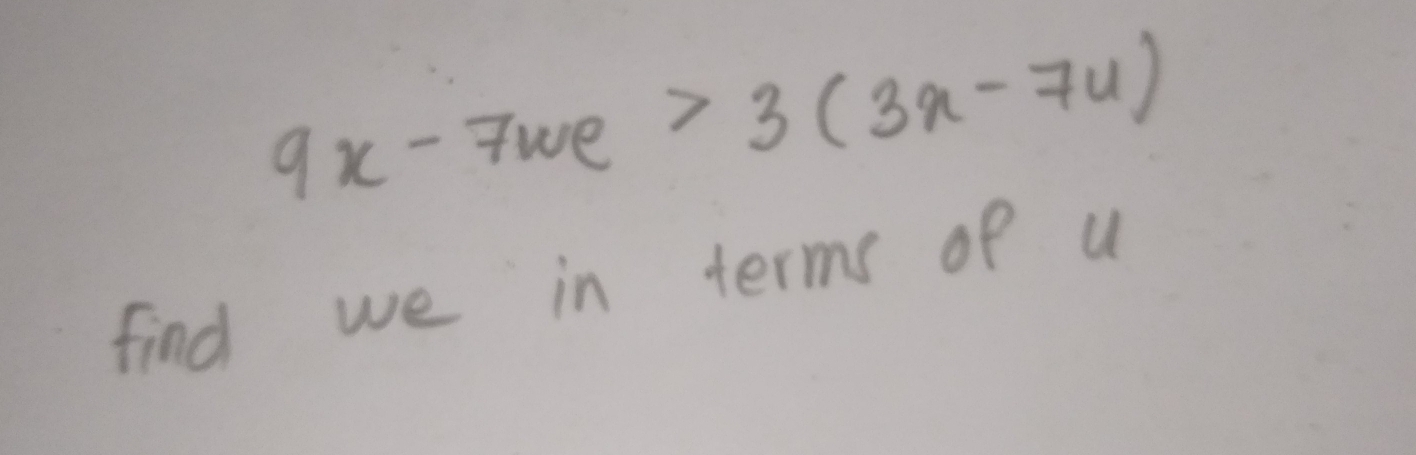 9x - 7we > 3(3x - 7u)
find we in terms of u